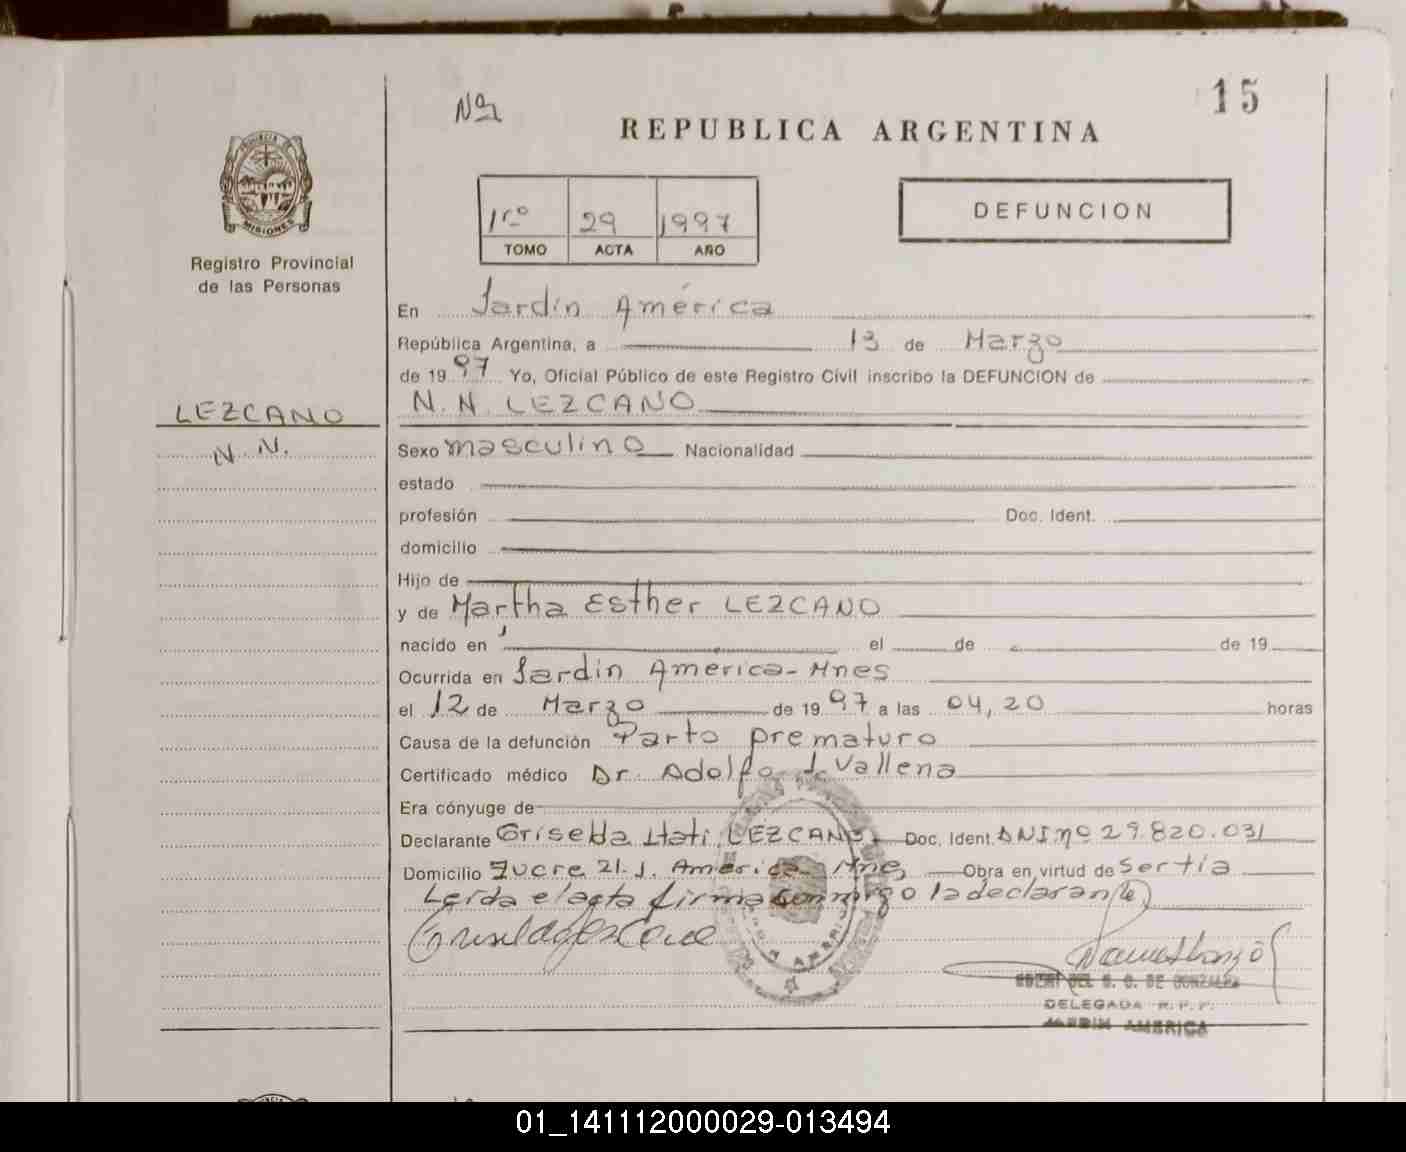 Nº
15
REPUBLICA ARGENTINA
PROVINCIA DE
MISIONES
Registro Provincial
de las Personas
1rº 29 1997
TOMO ACTA AÑO
DEFUNCION
En Jardín América
República Argentina, a 13 de Marzo
de 1997 Yo, Oficial Público de este Registro Civil inscribo la DEFUNCION de
LEZCANO
N. N.
N. N. LEZCANO
Sexo masculino Nacionalidad
estado
profesión Doc. Ident.
domicilio
Hijo de
y de Martha Esther LEZCANO
nacido en el de de 19
Ocurrida en Jardín America - Mnes
el 12 de Marzo de 1997 a las 04,20 horas
Causa de la defunción Parto prematuro
Certificado médico Dr. Adolfo J. Vallena
Era cónyuge de
Declarante Griselda Itatí LEZCANO Doc. Ident. DNI nº 29.820.031
Domicilio Sucre 21. J. América Mnes Obra en virtud de Ser tía
Leída el acta firma conmigo la declarante
DE GONZALEZ
DELEGADA R. P. P.
JARDIN AMERICA
01_141112000029-013494